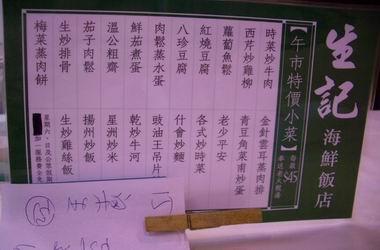 生記
海鮮飯店
【午市特價小菜】
每款$45
時菜炒牛肉
西芹炒雞柳
蘿蔔魚鬆
紅燒豆腐
八珍豆腐
肉鬆蒸水蛋
鮮茄煮蛋
溫公粗齋
茄子肉鬆
生炒排骨
梅菜蒸肉餅
金針雲耳蒸肉排
青豆角菜甫炒蛋
老少平安
各式炒時菜
什會炒麵
豉油王吊片
乾炒牛河
星洲炒米
揚州炒飯
生炒雞絲飯
星期六、日及公眾假期
加一服務費全免